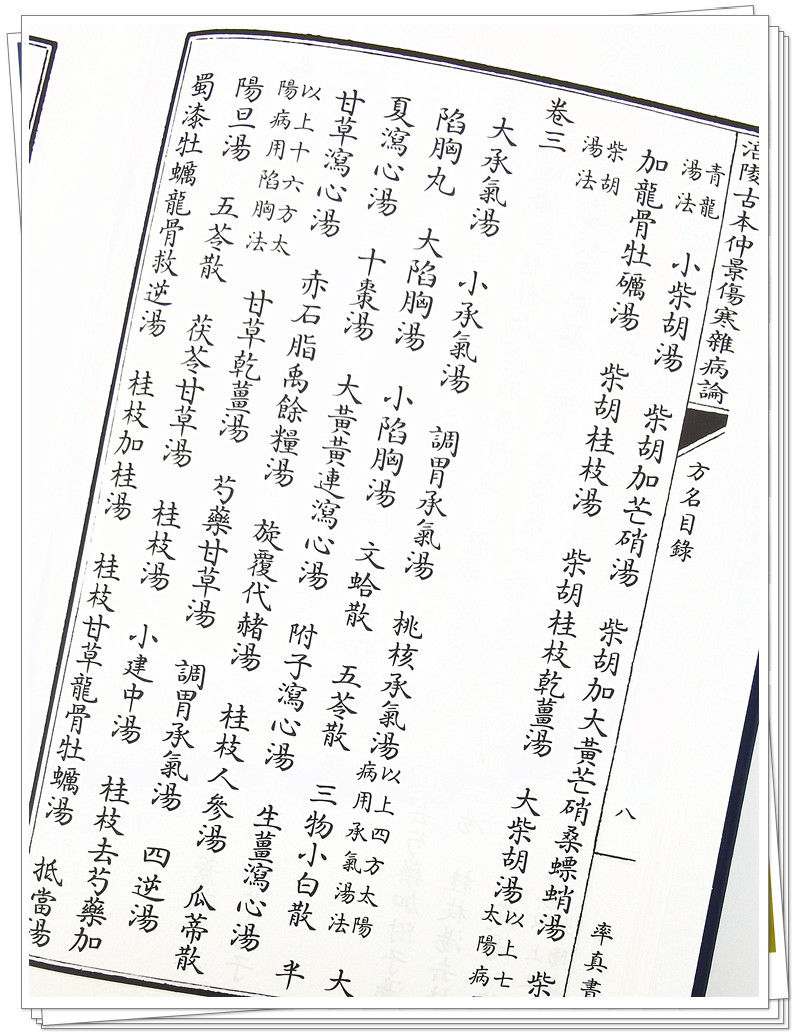 涪陵古本仲景傷寒雜病論 方名目錄 八 率真書
青龍湯法 小柴胡湯 柴胡加芒硝湯 柴胡加大黃芒硝桑螵蛸湯 柴
加龍骨牡礪湯 柴胡桂枝湯 柴胡桂枝乾薑湯 大柴胡湯 以上七太陽病
柴胡湯法
卷三
大承氣湯 小承氣湯 調胃承氣湯 桃核承氣湯 以上四方太陽病用承氣湯法 大
陷胸丸 大陷胸湯 小陷胸湯 文蛤散 五苓散 三物小白散 半
夏瀉心湯 十棗湯 大黃黃連瀉心湯 附子瀉心湯 生薑瀉心湯
甘草瀉心湯 赤石脂禹餘糧湯 旋覆代赭湯 桂枝人參湯 瓜蒂散
以上十六方太陽病用陷胸法 甘草乾薑湯 芍藥甘草湯 調胃承氣湯 四逆湯
陽旦湯 五苓散 茯苓甘草湯 桂枝湯 小建中湯 桂枝去芍藥加
蜀漆牡蠣龍骨救逆湯 桂枝加桂湯 桂枝甘草龍骨牡蠣湯 抵當湯